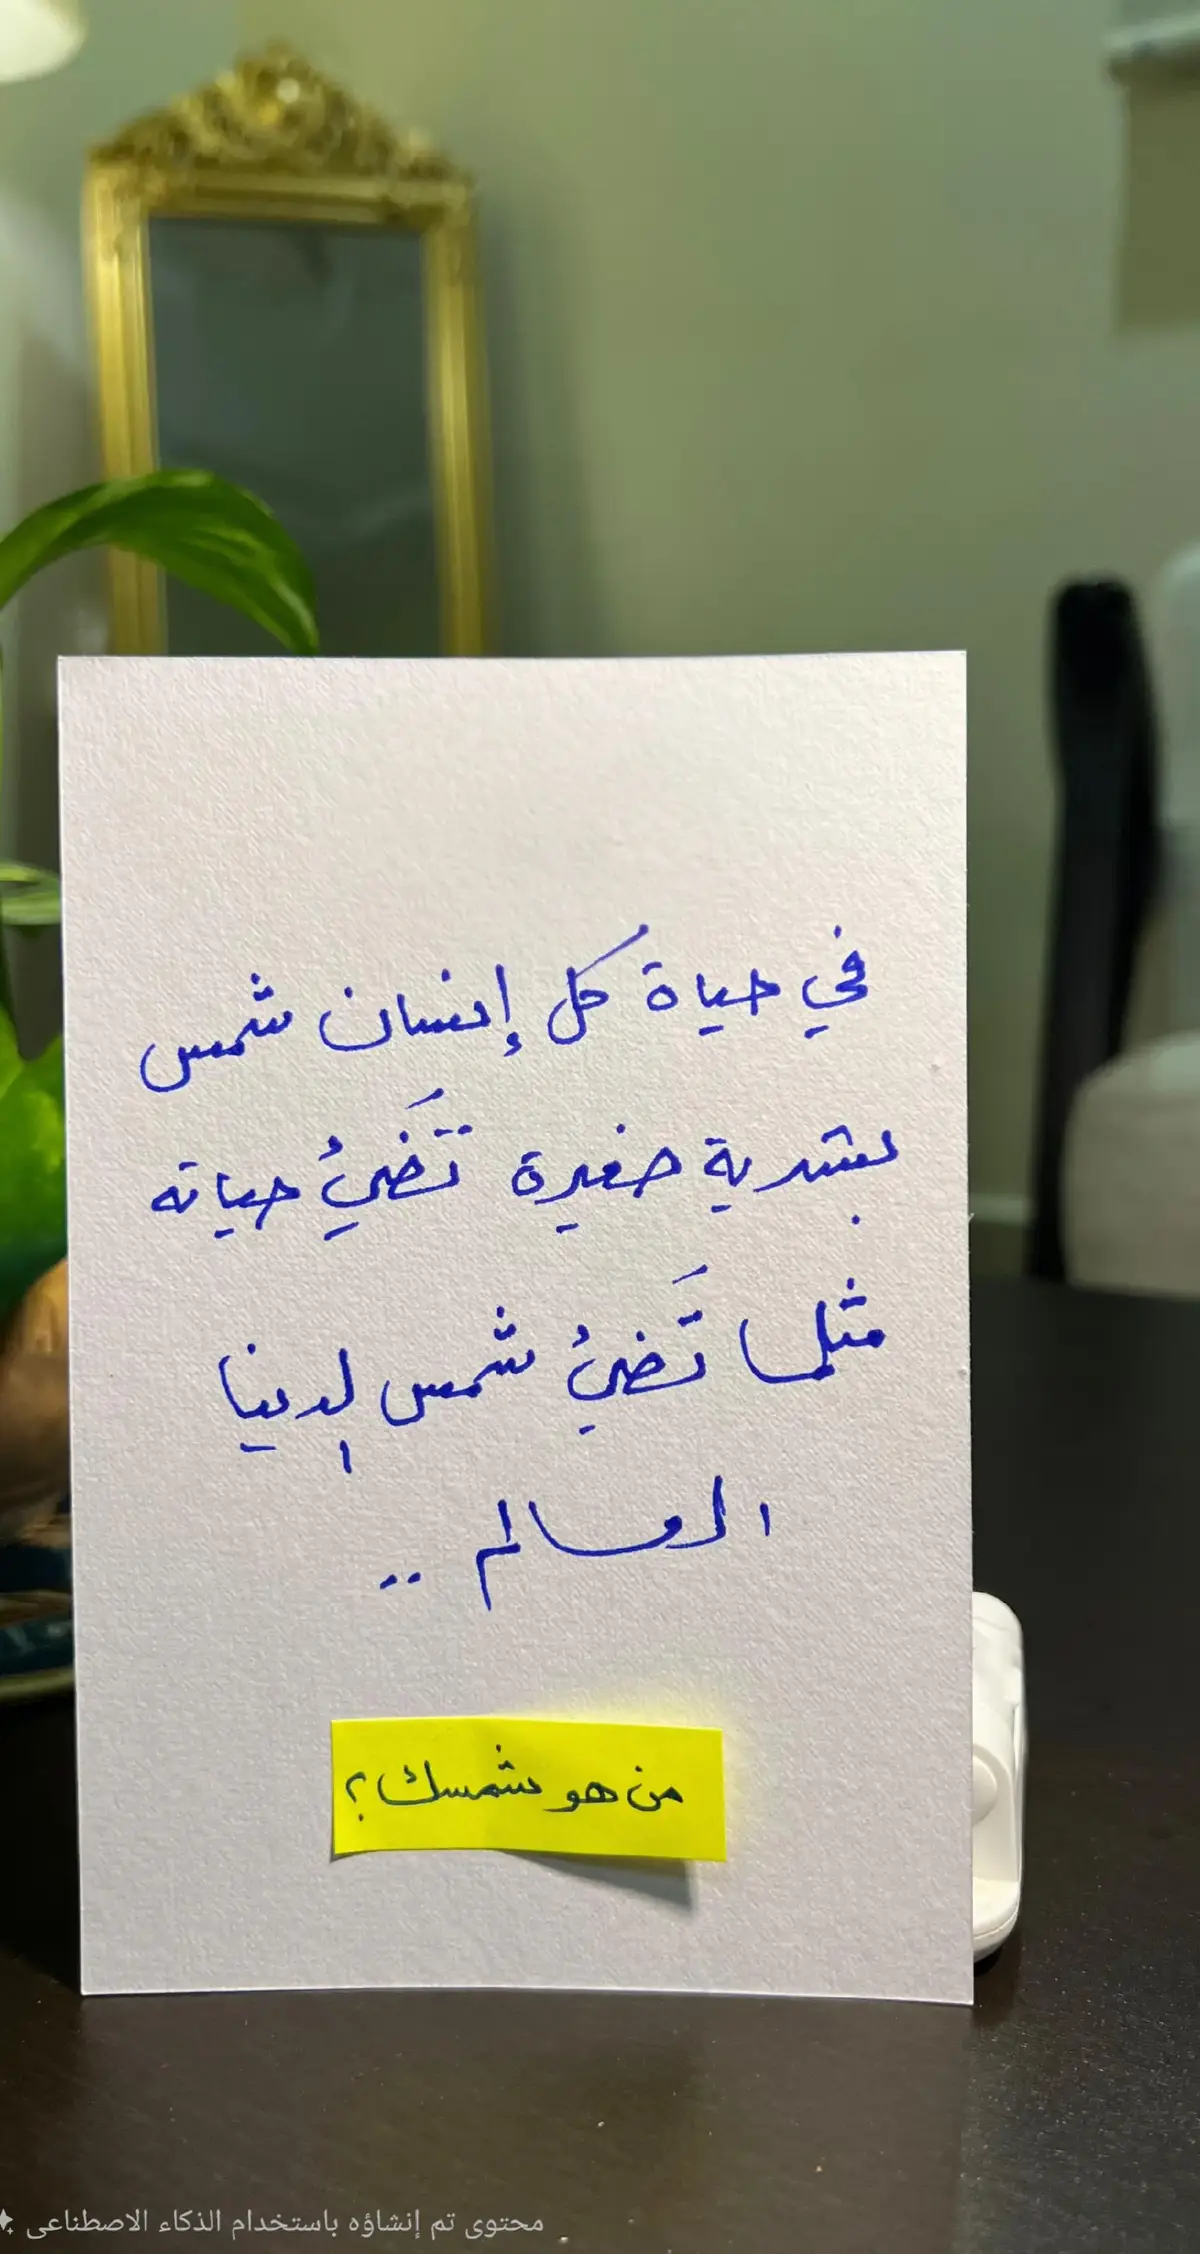 في حياة كل إنسان شمس
بشرية صغيرة تَضيُء حياته
مثلما تَضيُء شمس الدنيا
العالم ..
من هو شمسك؟
محتوى تم إنشاؤه باستخدام الذكاء الاصطناعي